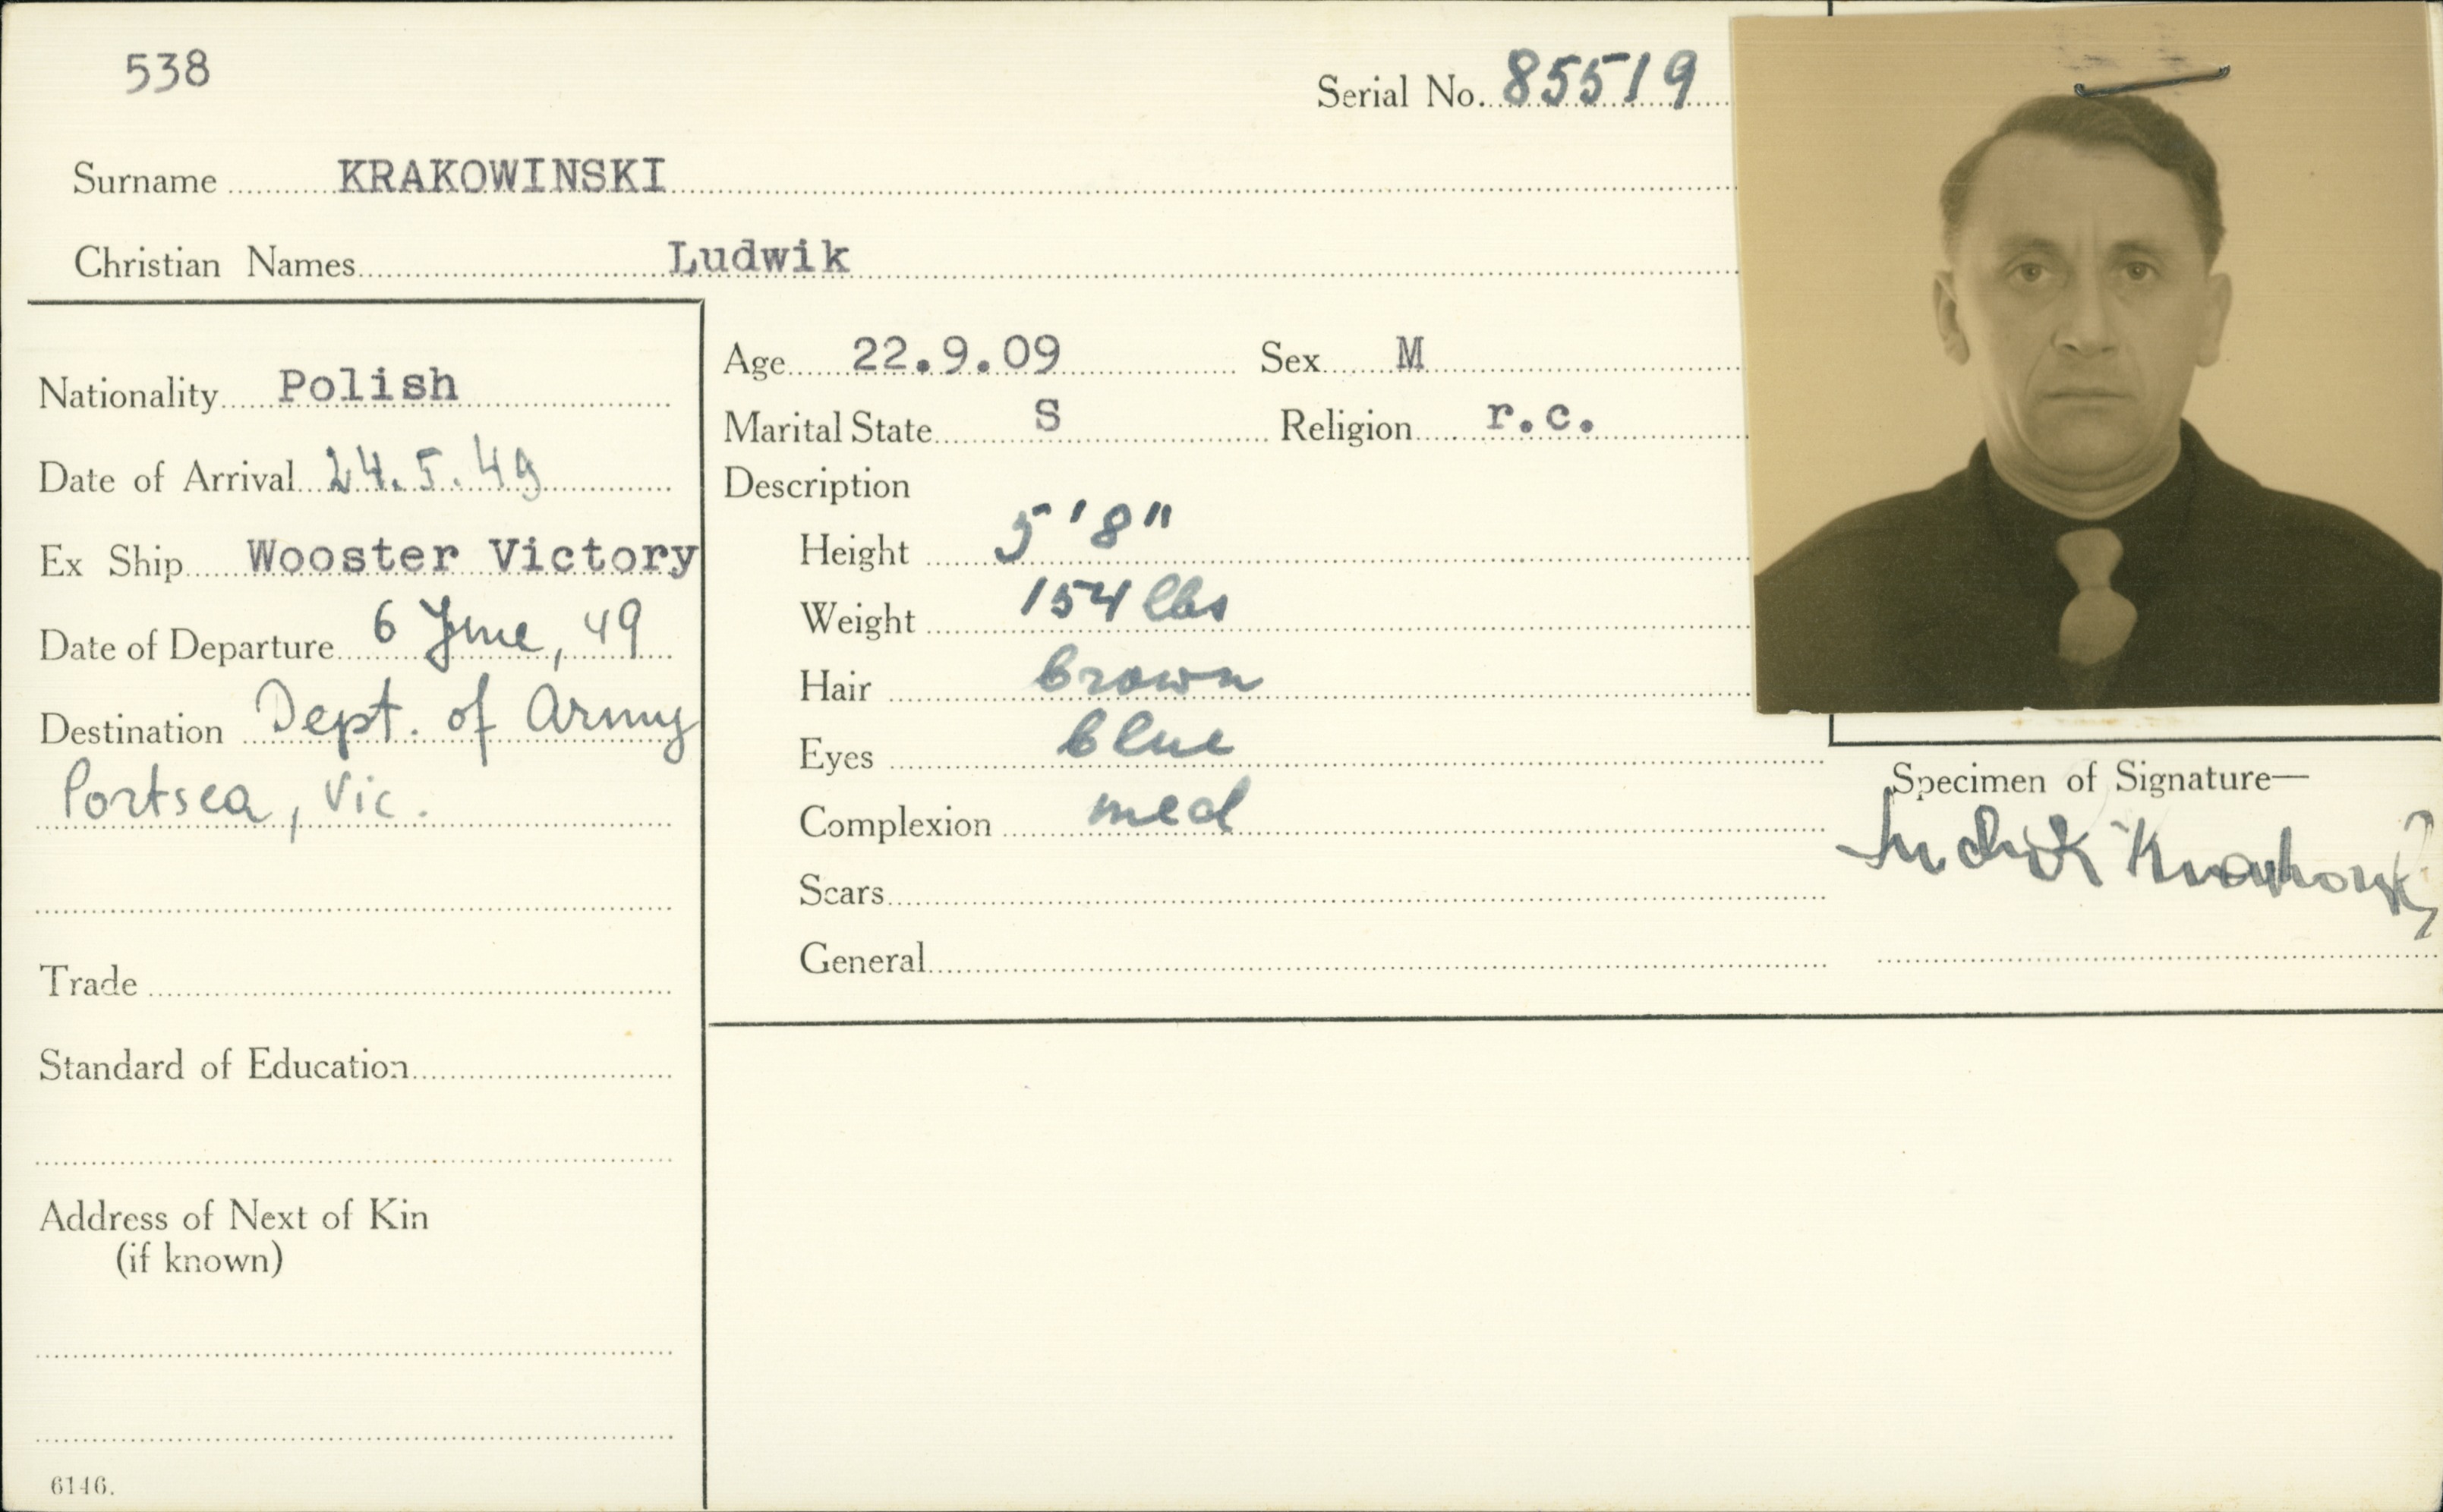 538
Serial No. 85519
Surname KRAKOWINSKI
Christian Names Ludwik
Nationality Polish
Date of Arrival 24.5.49
Ex Ship Wooster Victory
Date of Departure 6 June, 49
Destination Dept. of Army
Portsea, Vic.
Trade
Standard of Education
Address of Next of Kin
(if known)
6146.
Age 22.9.09 Sex M
Marital State S Religion r.c.
Description
Height 5'8"
Weight 154 lbs
Hair brown
Eyes blue
Complexion med
Scars
General
Specimen of Signature—
Ludwik